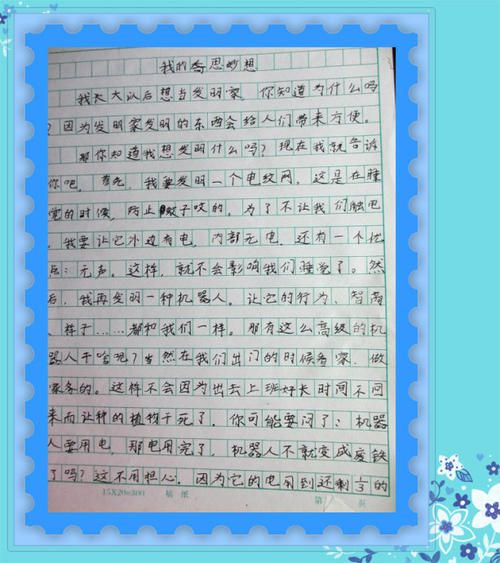 我的奇思妙想
我长大以后想当发明家 你知道为什么吗
?因为发明家发明的东西会给人们带来方便。
那你知道我想发明什么吗?现在我就告诉
你吧。首先,我要发明一个电纹网,这是在睡
觉的时候,防止蚊子咬的。为了不让我们触电
,我要让它外边有电,内部无电,还有一个优
点:无声。这样,就不会影响我们睡觉了。然
后,我再发明一种机器人。让它的行为、智商
、样子……都和我们一样。那有这么高级的机
器人干啥呢?当然在我们出门的时候看家、做
家务的。这样不会因为出去上班好长时间不回
来而让种的植物干死了,你可能要问了:机器
人要用电,那电用完了,机器人不就变成废铁
了吗?这不用担心,因为它的电用到还剩1/3的
15X20=300 稿纸 第 页